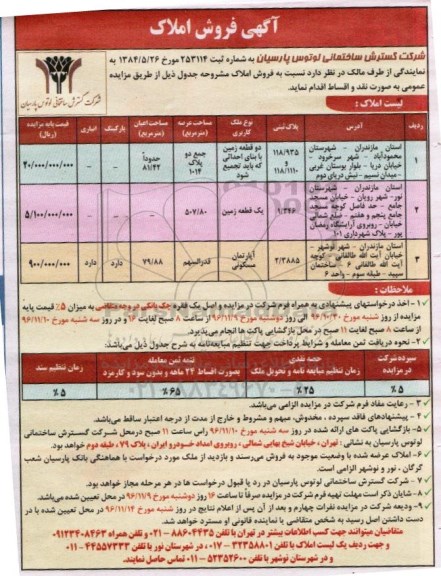 آگهی فروش املاک
شرکت گسترش ساختمانی لوتوس پارسیان به شماره ثبت ۲۵۳۱۱۴ مورخ ۱۳۸۴/۵/۲۶ به
نمایندگی از طرف مالک در نظر دارد نسبت به فروش املاک مشروحه جدول ذیل از طریق مزایده
عمومی به صورت نقد و اقساط اقدام نماید.
شرکت گسترش ساختمانی لوتوس پارسیان
لیست املاک :
ردیف آدرس پلاک ثبتی نوع ملک کاربری مساحت عرصه (مترمربع) مساحت اعیان (مترمربع) پارکینگ انباری قیمت پایه مزایده (ریال)
۱ استان مازندران - شهرستان محمودآباد - شهر سرخرود - خیابان دریا - بلوار بوستان غربی - میدان نسیم - نبش دریای دوم ۱۱۸/۹۳۵ و ۱۱۸/۱۱۱۰ دو قطعه زمین با بنای احداثی که باید تجمیع شود جمع دو پلاک ۱۰۱۴ حدوداً ۸۱/۴۲ - - ۲۰/۰۰۰/۰۰۰/۰۰۰
۲ استان مازندران - شهرستان نور - شهر رویان - خیابان مسجد جامع - حد فاصل کوچه مسجد جامع پنجم و هفتم - ضلع شمالی خیابان - روبروی آرایشگاه رمضان پور - پلاک شهرداری ۱۰۱ ۹/۳۴۶ یک قطعه زمین ۵۰۷/۸۰ - - - ۵/۱۰۰/۰۰۰/۰۰۰
۳ استان مازندران - شهر نوشهر - خیابان آیت الله طالقانی - کوچه آیت الله طالقانی ۶ - ساختمان سپید - طبقه سوم - واحد ۶ ۲/۳۸۸۵ آپارتمان مسکونی قدرالسهم ۷۹/۸۸ دارد دارد ۹۰۰/۰۰۰/۰۰۰
ملاحظات :
۱- اخذ درخواستهای پیشنهادی به همراه فرم شرکت در مزایده و اصل یک فقره چک بانکی در وجه متقاضی به میزان ۵٪ قیمت پایه
مزایده از روز شنبه مورخ ۹۶/۱۰/۳۰ الی روز دوشنبه مورخ ۹۶/۱۱/۹ از ساعت ۸ صبح لغایت ۱۶ و در روز سه شنبه مورخ ۹۶/۱۱/۱۰
از ساعت ۸ صبح لغایت ۱۱ صبح در محل بازگشایی پاکت ها انجام می‌پذیرد.
۲- نحوه دریافت ثمن معامله و شرایط پرداخت جهت تنظیم مبایعه‌نامه به شرح جدول ذیل می‌باشد:
سپرده شرکت در مزایده حصه نقدی زمان تنظیم مبایعه نامه و تحویل ملک تتمه ثمن معامله بصورت اقساط ۲۴ ماهه و بدون سود و کارمزد زمان تنظیم سند
۵٪ ۲۵٪ ۶۵٪ ۵٪
۳- رعایت مفاد فرم شرکت در مزایده الزامی می‌باشد.
۴- پیشنهادهای فاقد سپرده ، مخدوش، مبهم و مشروط و خارج از مدت از درجه اعتبار ساقط می‌باشد.
۵- بازگشایی پاکت های ارائه شده در روز سه شنبه مورخ ۹۶/۱۱/۱۰ راس ساعت ۱۱ صبح درمحل شرکت گسترش ساختمانی
لوتوس پارسیان به نشانی : تهران ، خیابان شیخ بهایی شمالی ، روبروی امداد خودرو ایران ، پلاک ۷۹، طبقه دوم خواهد بود.
۶- املاک عرضه شده با وضعیت موجود به فروش می‌رسند و بازدید از ملک مورد درخواست با هماهنگی بانک پارسیان شعب
گرگان ، نور و نوشهر الزامی است.
۷- شرکت گسترش ساختمانی لوتوس پارسیان در رد یا قبول درخواست ها در هر مرحله مجاز خواهد بود.
۸- شایان ذکر است مهلت تهیه فرم شرکت در مزایده صرفاً تا ساعت ۱۶ روز دوشنبه مورخ ۹۶/۱۱/۹ در محل تعیین شده می‌باشد.
۹- ودیعه شرکت در مزایده نفرات چهارم و بعد از آن پس از اعلام نتایج در روز شنبه مورخ ۹۶/۱۱/۱۴ در محل تعیین شده با در
دست داشتن اصل رسید به شخص متقاضی یا نماینده قانونی او مسترد خواهد شد.
متقاضیان میتوانند جهت کسب اطلاعات بیشتر در تهران با تلفن ۸۸۶۰۴۴۳۵ - ۰۲۱ و تلفن همراه ۰۹۱۲۳۴۰۸۴۶۳
و جهت ردیف یک لیست املاک با تلفن ۳۲۳۵۸۸۰۱ - ۰۱۷ ، در شهرستان نور با تلفن ۴۴۵۵۷۳۳۳ - ۰۱۱
و در شهرستان نوشهر با تلفن ۵۲۳۵۲۶۰۰ - ۰۱۱ تماس حاصل نمایند.